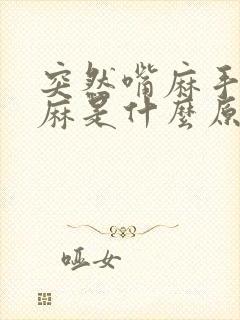 突然嘴麻手
麻是什麼原
哑女